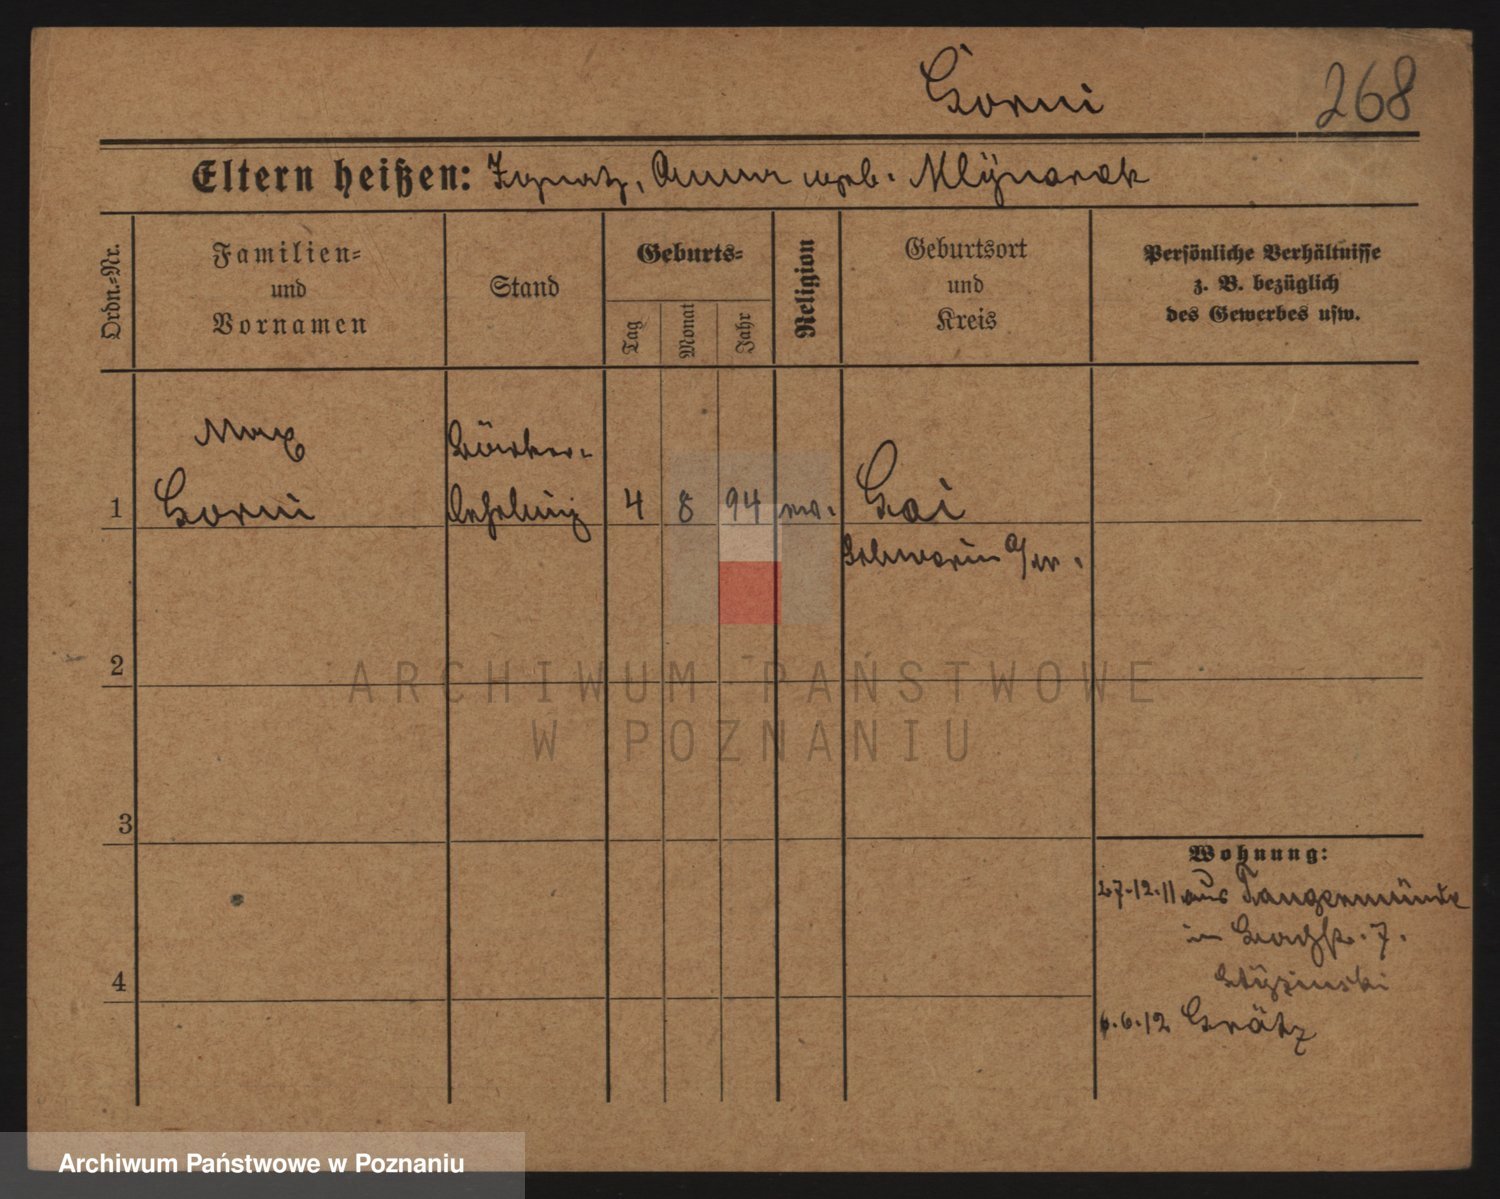 Gorni 268
Eltern heißen: Ignatz, Anna geb. Mlÿnarek
Ordn.-Nr.
Familien-
und
Vornamen
Stand
Geburts-
Tag
Monat
Jahr
Religion
Geburtsort
und
Kreis
Persönliche Verhältnisse
z. B. bezüglich
des Gewerbes usw.
Max
1 Gorni 4 8 94 Gai
Schwerin a/W.
2
3
4
Wohnung:
27.12.11 aus Tangermünde
in 7.
6.6.12 Grätz
ARCHIWUM PAŃSTWOWE
W POZNANIU
Archiwum Państwowe w Poznaniu